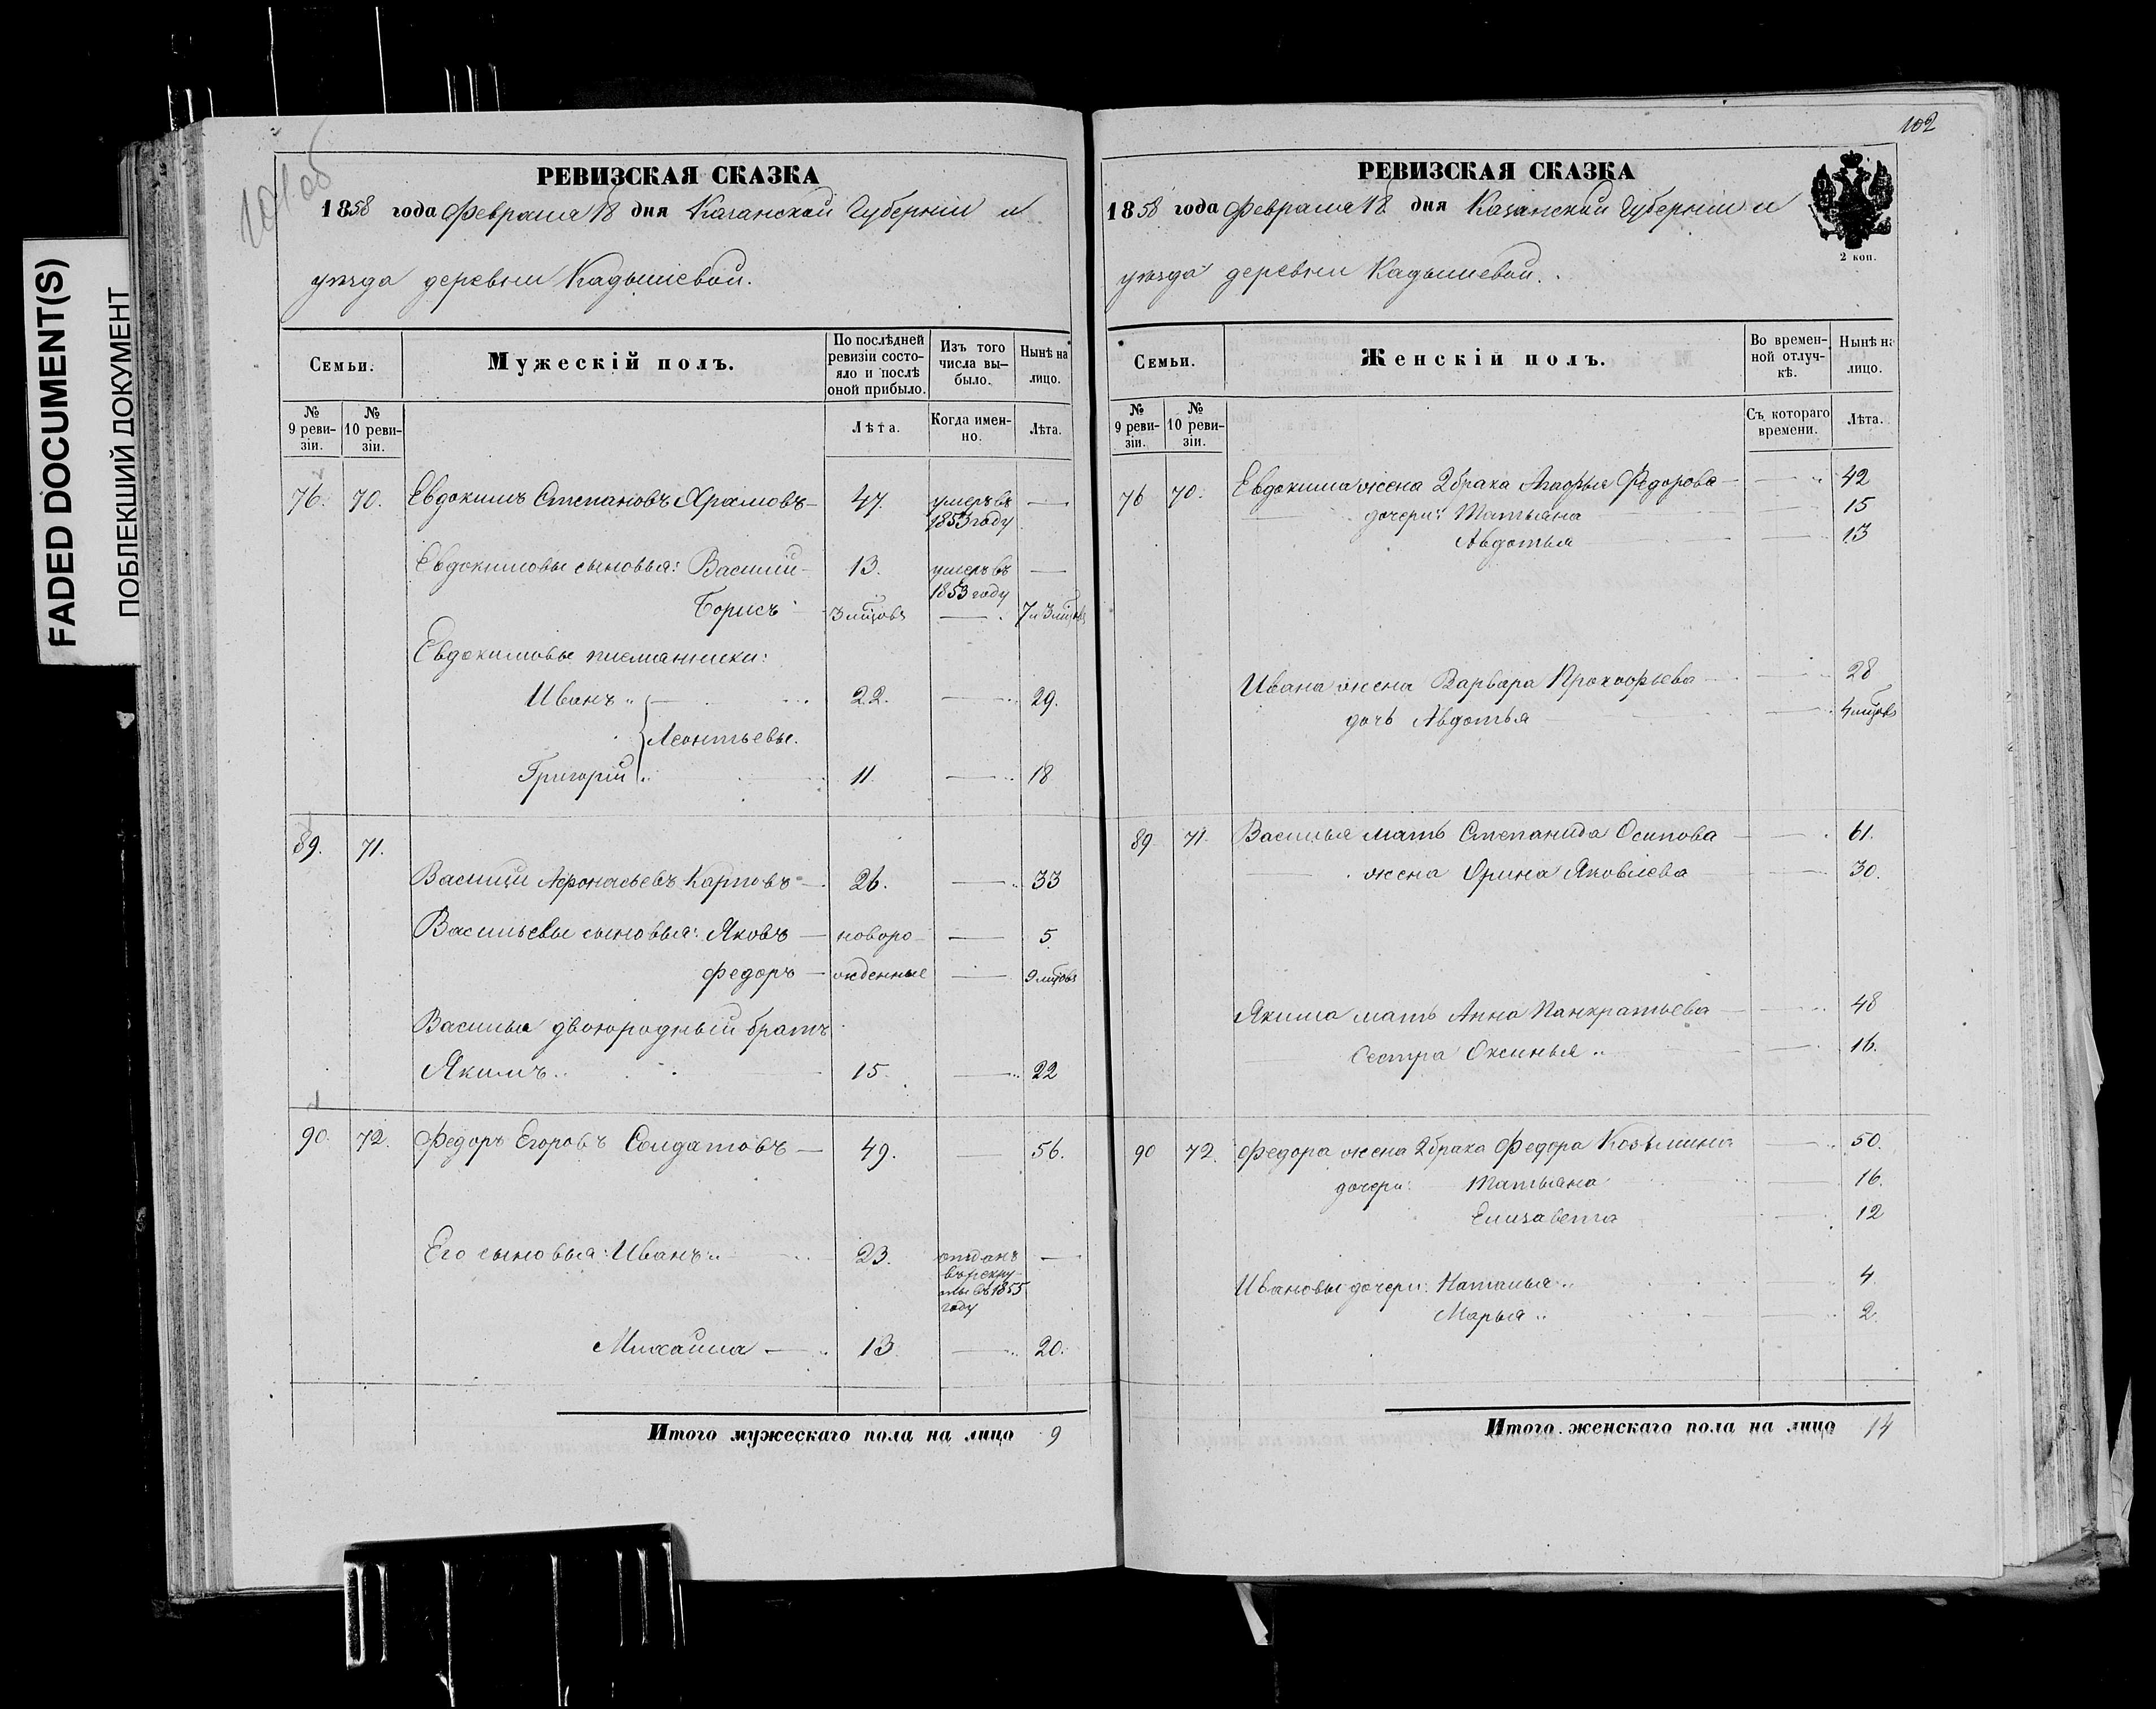 FADED DOCUMENT(S)
ПОБЛЕКШИЙ ДОКУМЕНТ
101 об
РЕВИЗСКАЯ СКАЗКА
1858 года Февраля 18 дня Казанской Губернии и
уѣзда деревни Кадышевой.
Семьи.
Мужескiй полъ.
По послѣдней
ревизiи состо-
яло и послѣ
оной прибыло.
Изъ того
числа вы-
было.
Нынѣ на
лицо.
№
9 реви-
зiи.
№
10 реви-
зiи.
Лѣта.
Когда имен-
но.
Лѣта.
76. 70. Евдокимъ Степановъ Храмовъ — 47. умеръ въ —
1853 году
Евдокимовы сыновья: Василий — 13. умеръ въ —
1853 году
Борисъ 3 мцовъ — 7 и 3 мцовъ
Евдокимовы племянники:
Иванъ 22. — 29.
Леонтьевы.
Григорий 11. — 18
89. 71.
Василий Афонасьевъ Карповъ — 26. — 33
Васильевы сыновья: Яковъ — новоро — 5.
Федоръ — жденные — 9 мцовъ
Василья двоюродный братъ
Якимъ 15. — 22
90. 72. Федоръ Егоровъ Солдатовъ — 49. — 56.
Его сыновья: Иванъ 23. отданъ —
въ рекру-
ты въ 1855
году
Михаила — 13. — 20.
Итого мужескаго пола на лицо 9
102
РЕВИЗСКАЯ СКАЗКА
1858 года Февраля 18 дня Казанской Губернии и
уѣзда деревни Кадышевой.
2 коп.
Семьи.
Женскiй полъ.
Во времен-
ной отлуч-
кѣ.
Нынѣ на
лицо.
№
9 реви-
зiи.
№
10 реви-
зiи.
Съ котораго
времени.
Лѣта.
76 70. Евдокима жена 2 брака Агафья Федорова — 42
дочери: Татьяна — 15
Авдотья — 13
Ивана жена Варвара Прокофьева — 28
дочь Авдотья — 4 мцовъ
89 71. Василья мать Степанида Осипова — 61.
жена Орина Яковлева — 30.
Якима мать Анна Панкратьева — 48
сестра Оксинья — 16.
90 72. Федора жена 2 брака Федора Козьмина — 50.
дочери: Татьяна — 16.
Елизавета — 12
Ивановы дочери: Наталья 4
Марья — 2.
Итого женскаго пола на лицо 14